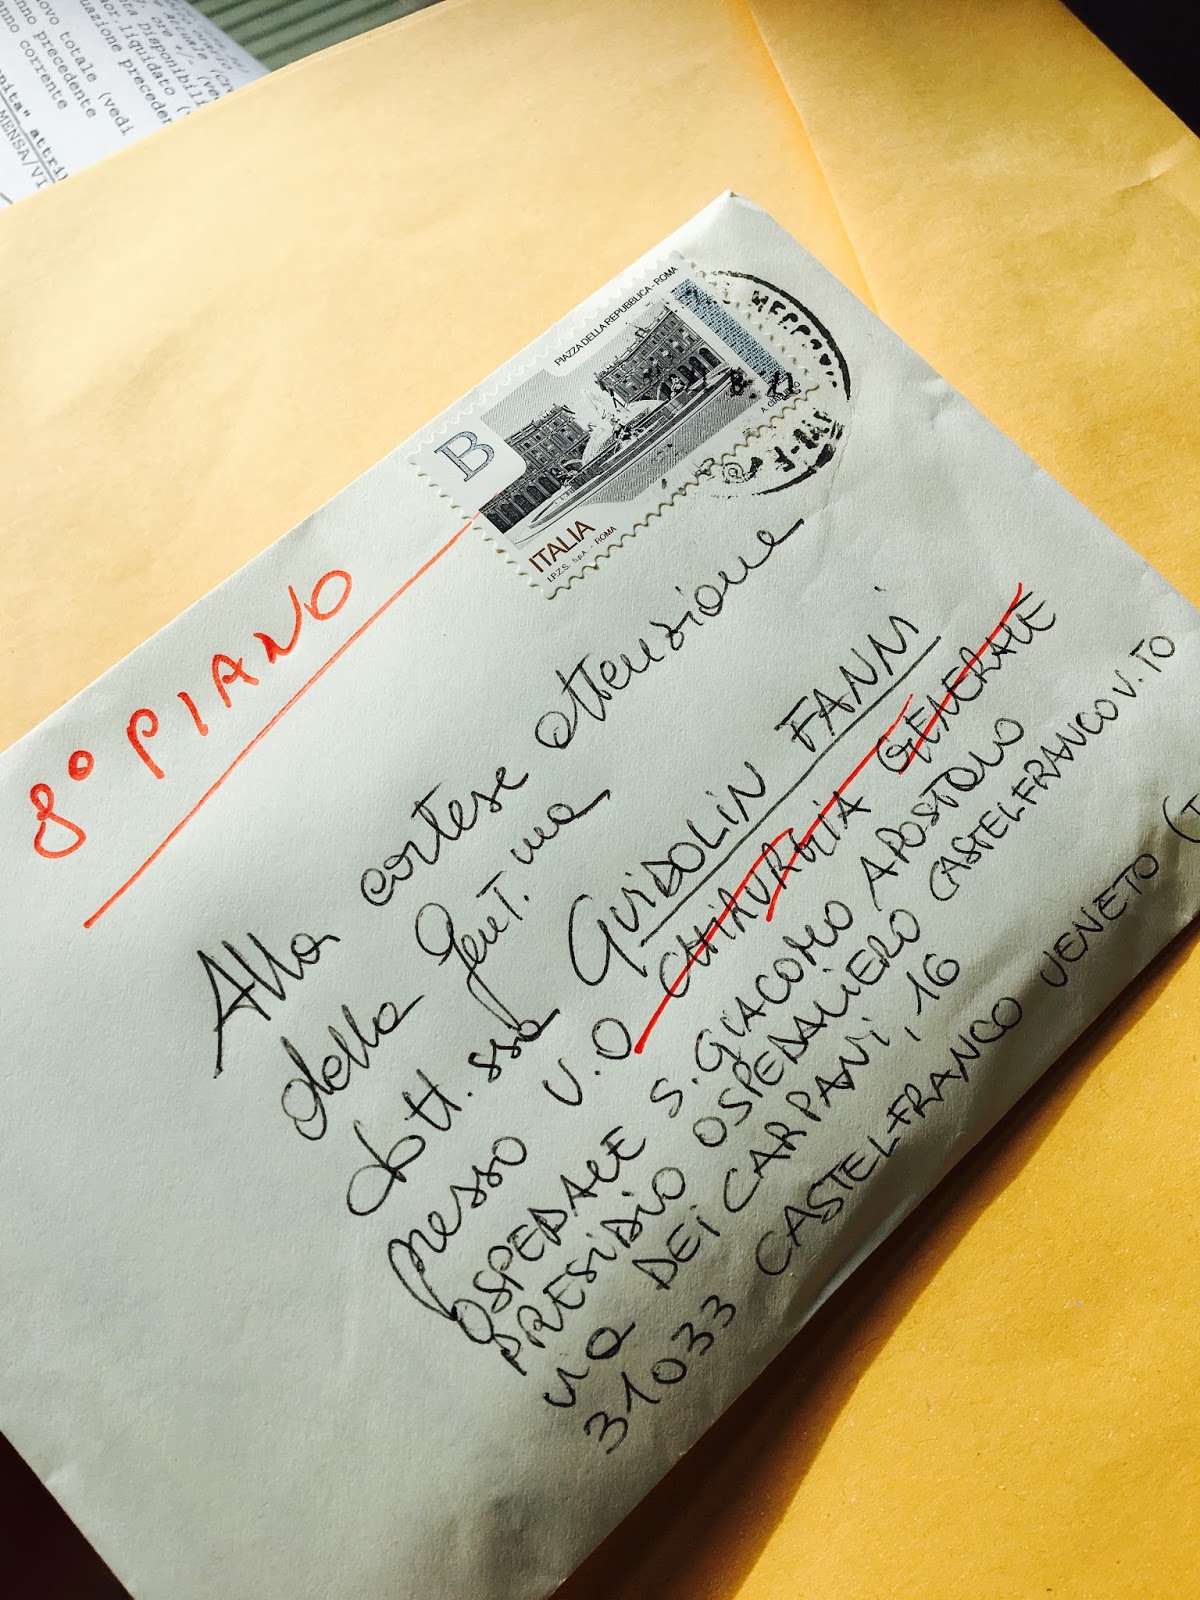 ovo totale (vedi
anno precedente
nno corrente
MENSA/VI
PIAZZA DELLA REPUBBLICA - ROMA
B
ITALIA
I.P.Z.S. S.p.A. - ROMA
8° PIANO
Alla cortese attenzione
della Gent.ma
dott.ssa GUIDOLIN FANNI
presso U.O. CHIRURGIA GENERALE
OSPEDALE S. GIACOMO APOSTOLO
PRESIDIO OSPEDALIERO CASTELFRANCO V.TO
VIA DEI CARPANI, 16
31033 CASTELFRANCO VENETO (T